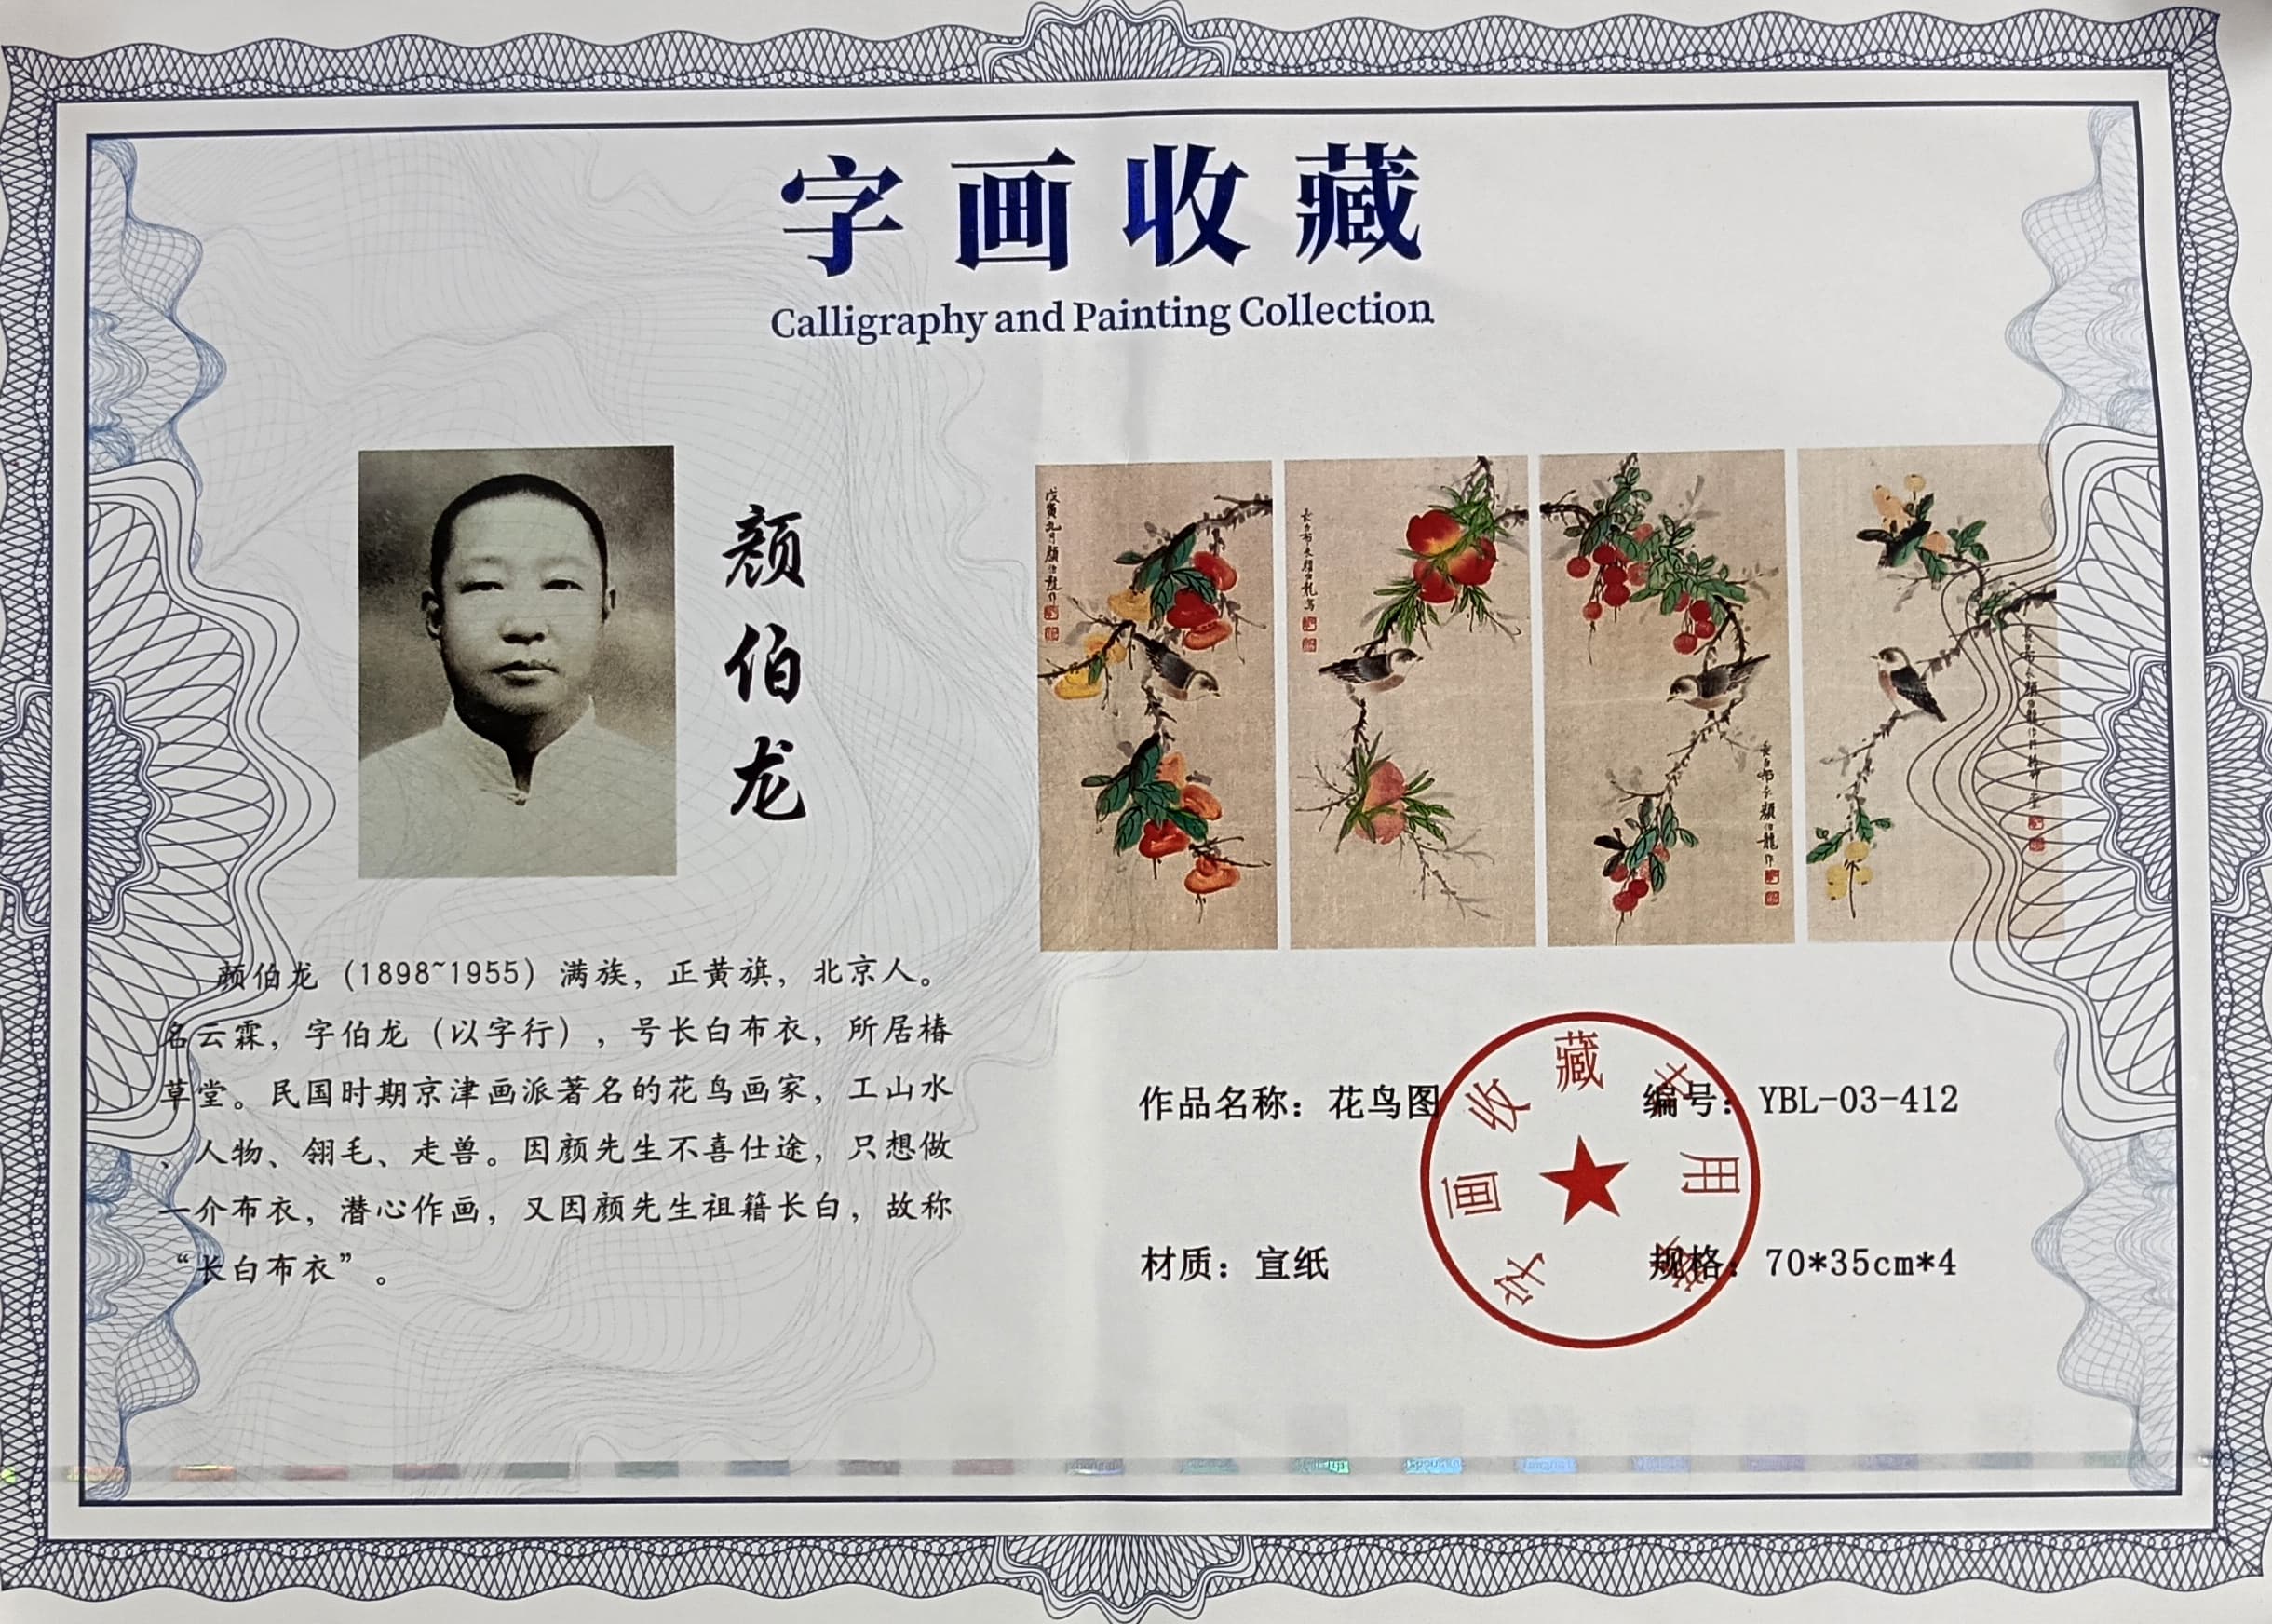 字画收藏
Calligraphy and Painting Collection
颜伯龙
戊寅九月顏伯龍作
长白布衣顏伯龍写
长白布衣顏伯龍作
颜伯龙（1898~1955）满族，正黄旗，北京人。
名云霖，字伯龙（以字行），号长白布衣，所居椿
草堂。民国时期京津画派著名的花鸟画家，工山水
、人物、翎毛、走兽。因颜先生不喜仕途，只想做
一介布衣，潜心作画，又因颜先生祖籍长白，故称
“长白布衣”。
作品名称：花鸟图
编号：YBL-03-412
材质：宣纸
规格：70*35cm*4
字画收藏专用章